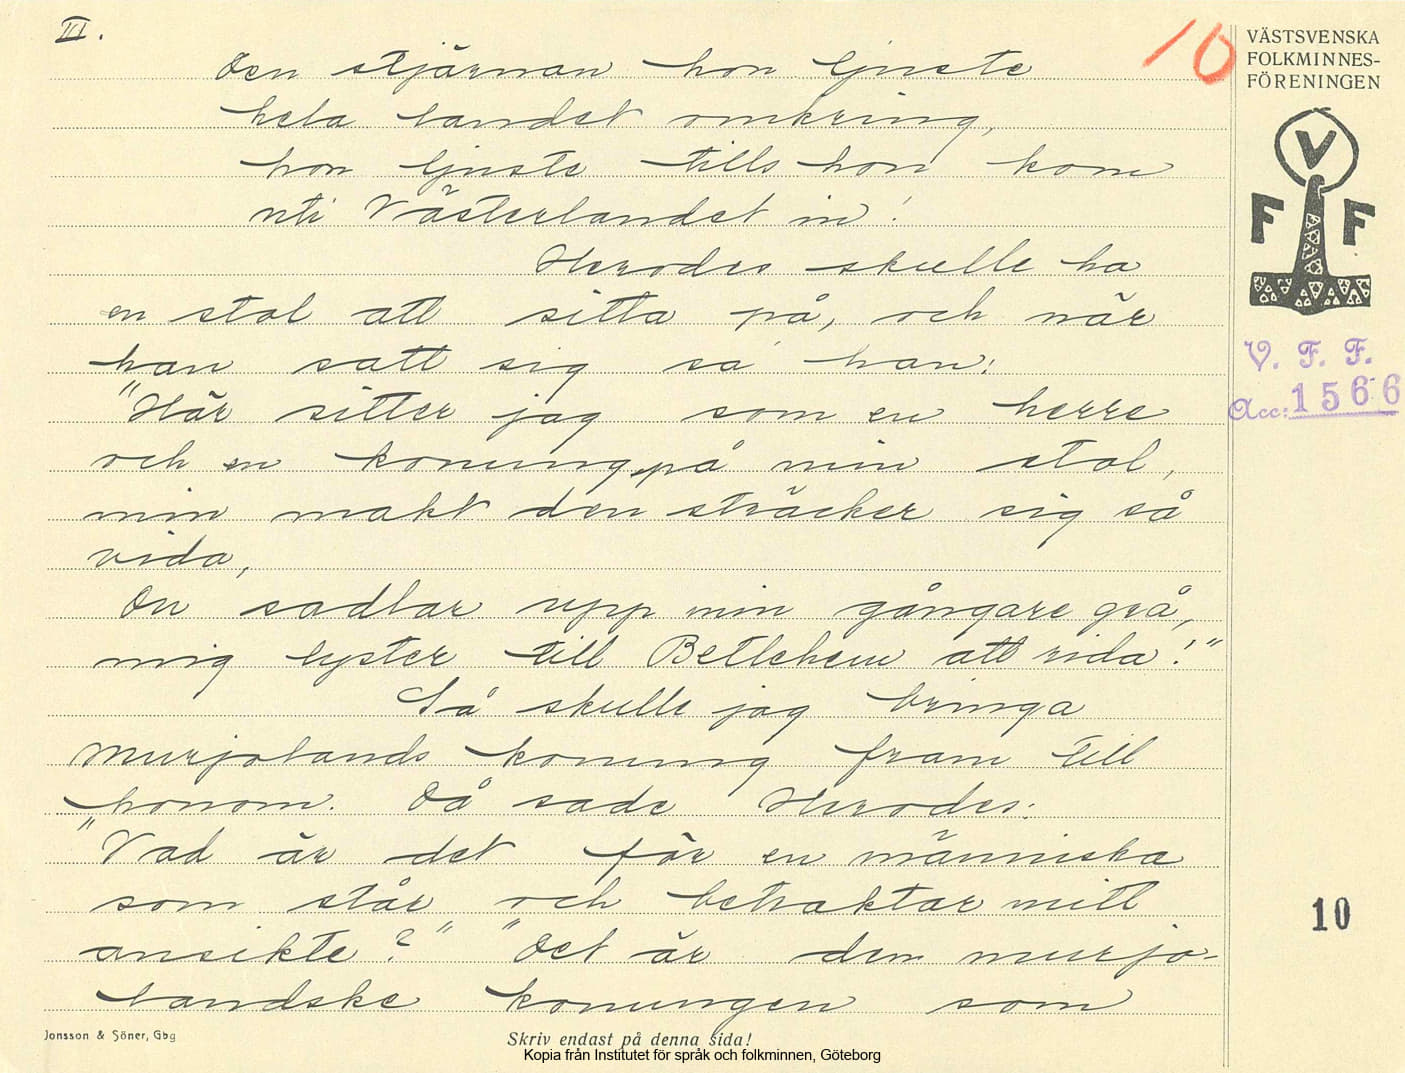 III.
10
Den stjärnan hon ljuste
hela landet omkring,
hon ljuste tills hon kom
uti Västerlandet in!
Herodes skulle ha
en stol att sitta på, och när
han satt sig sa' han:
"Här sitter jag som en herre
och en konung på min stol,
min makt den sträcker sig så
vida,
Du sadlar upp min gångare grå,
mig lyster till Betlehem att rida!"
Så skulle jag bringa
Murjolands konung fram till
honom. Då sade Herodes:
"Vad är det för en människa
som står och betraktar mitt
ansikte?" "Det är den murjo-
landske konungen som
Jonsson & Söner, Gbg
Skriv endast på denna sida!
Kopia från Institutet för språk och folkminnen, Göteborg
VÄSTSVENSKA
FOLKMINNES-
FÖRENINGEN
V
F F
V. F. F.
Acc: 1566
10